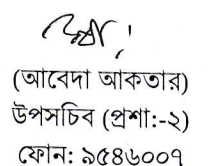 (আবেদা আকতার)
উপসচিব (প্রশা:-২)
ফোন: ৯৫৪৬০০৭